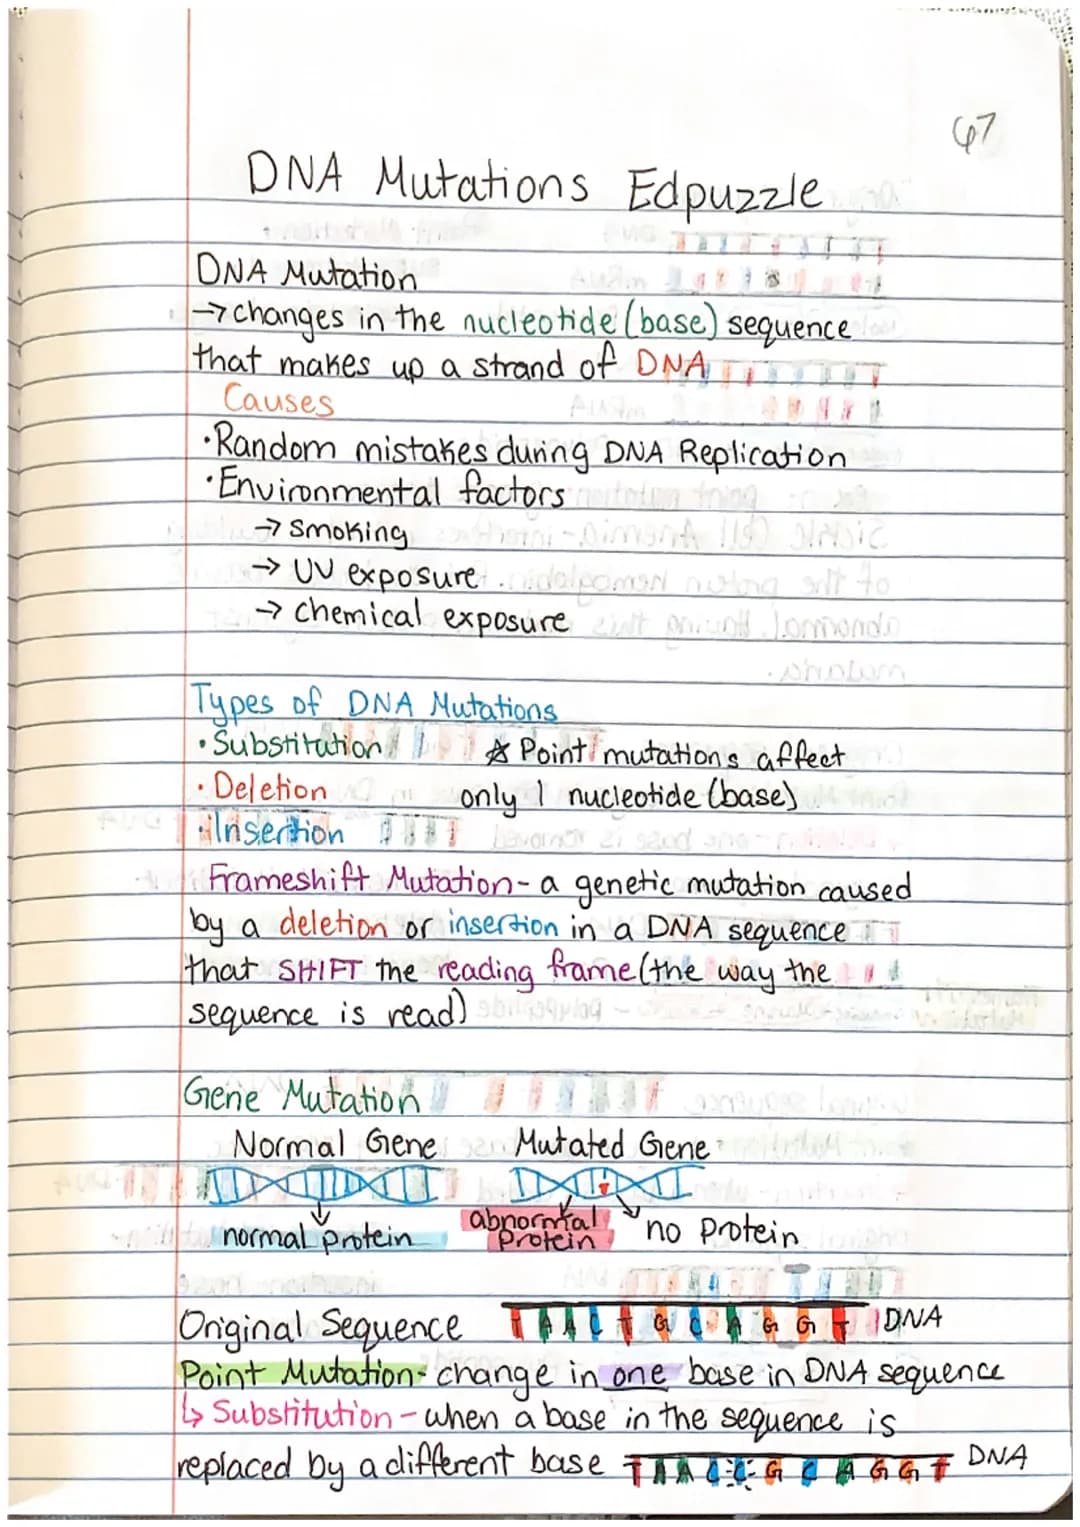 67
DNA Mutations Edpuzzle
DNA Mutation
→changes in the nucleotide (base) sequence
that makes up a strand of DNA
Causes
•Random mistakes during DNA Replication
•Environmental factors
→ Smoking
→ UV exposure
→ chemical exposure
Types of DNA Mutations
•Substitution ☆ Point mutations affect
•Deletion only 1 nucleotide (base)
•Insertion
Frameshift Mutation- a genetic mutation caused
by a deletion or insertion in a DNA sequence
that SHIFT the reading frame (the way the
sequence is read)
Gene Mutation
Normal Gene Mutated Gene
normal protein abnormal protein no protein
Original Sequence T A A C T G C A G G T DNA
Point Mutation- change in one base in DNA sequence
↳ Substitution - when a base in the sequence is
replaced by a different base T A A C C G C A G G T DNA